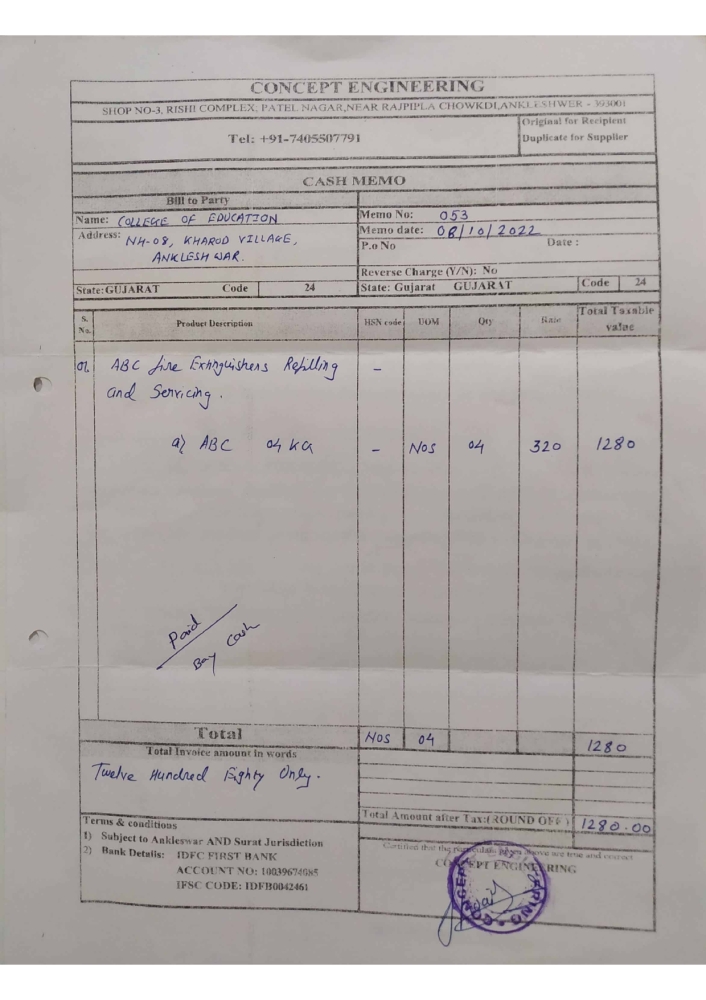 CONCEPT ENGINEERING
SHOP NO-3, RISHI COMPLEX, PATEL NAGAR,NEAR RAJPIPLA CHOWKDI,ANKLESHWER - 393001
Original for Recipient
Tel: +91-7405507791
Duplicate for Supplier
CASH MEMO
Bill to Party
Name: COLLEGE OF EDUCATION
Memo No: 053
Address: NH-08, KHAROD VILLAGE,
ANKLESHWAR.
Memo date: 08/10/2022
P.o No Date :
Reverse Charge (Y/N): No
State: GUJARAT Code 24
State: Gujarat GUJARAT Code 24
S. No. Product Description HSN code UOM Qty Rate Total Taxable value
01. ABC fire Extinguishers Refilling -
and Servicing.
a) ABC 04 KG - NOS 04 320 1280
Paid
Bay Cash
Total NOS 04 1280
Total Invoice amount in words
Twelve Hundred Eighty Only.
Total Amount after Tax:(ROUND OFF) 1280.00
Terms & conditions
1) Subject to Ankleswar AND Surat Jurisdiction
2) Bank Details: IDFC FIRST BANK
ACCOUNT NO: 10039674685
IFSC CODE: IDFB0042461
Certified that the particulars given above are true and correct
CONCEPT ENGINEERING